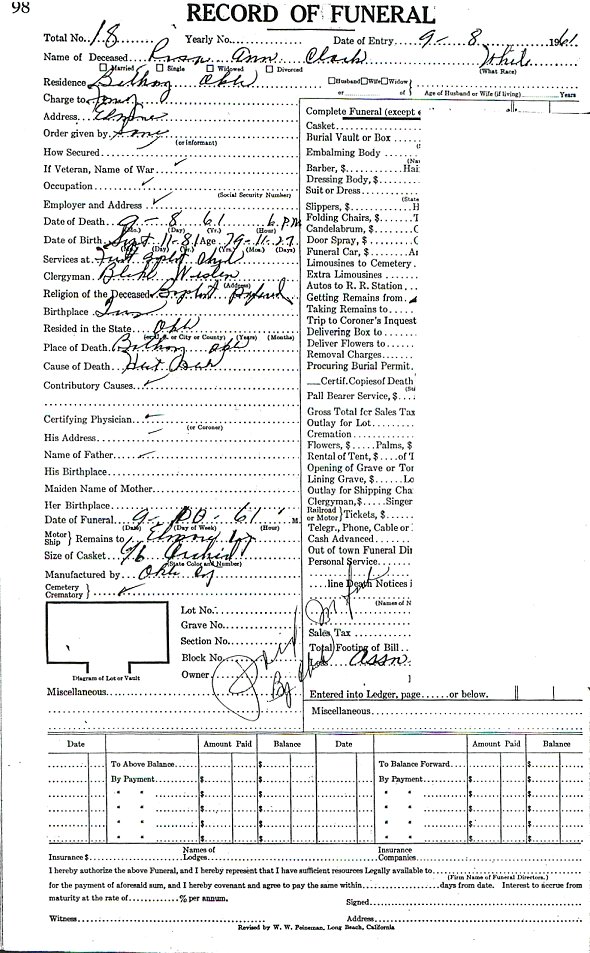 98
RECORD OF FUNERAL
Total No. 18 Yearly No. Date of Entry 9-8 1961
Name of Deceased Ann Clark White
Married Single Widowed Divorced (What Race)
Residence Bethany Okla Husband Wife Widow of Age of Husband or Wife (if living) Years
Charge to
Address
Order given by Same
(or informant)
How Secured
If Veteran, Name of War ✓
Occupation ✓
(Social Security Number)
Employer and Address ✓
Date of Death 9-8 61 6 P.M.
(Mo.) (Day) (Yr.) (Hour)
Date of Birth Sept 11-81 Age 79-11-27
(Mo.) (Day) (Yr.) (Yrs.) (Mos.) (Days)
Services at
Clergyman
(Address)
Religion of the Deceased Baptist
Birthplace
Resided in the State Okla
(or U.S. or City or County) (Years) (Months)
Place of Death Bethany Okla
Cause of Death
Contributory Causes ✓
Certifying Physician
(or Coroner)
His Address
Name of Father
His Birthplace
Maiden Name of Mother
Her Birthplace
Date of Funeral 9- -61 M
(Date) (Day of Week) (Hour)
Motor Ship } Remains to
Size of Casket 9/6 Orchid
(State Color and Number)
Manufactured by Okla
Cemetery Crematory } ✓
Lot No.
Grave No.
Section No.
Block No.
Owner
Diagram of Lot or Vault
Miscellaneous
Complete Funeral (except
Casket
Burial Vault or Box
Embalming Body
Barber, $ Hai
Dressing Body, $
Suit or Dress
(State
Slippers, $
Folding Chairs, $
Candelabrum, $
Door Spray, $
Funeral Car, $
Limousines to Cemetery
Extra Limousines
Autos to R. R. Station
Getting Remains from
Taking Remains to
Trip to Coroner's Inquest
Delivering Box to
Deliver Flowers to
Removal Charges
Procuring Burial Permit
Certif. Copies of Death
Pall Bearer Service, $
Gross Total for Sales Tax
Outlay for Lot
Cremation
Flowers, $ Palms, $
Rental of Tent, $ of T
Opening of Grave or Tor
Lining Grave, $ Lo
Outlay for Shipping Cha
Clergyman, $ Singer
Railroad or Motor } Tickets, $
Telegr., Phone, Cable or
Cash Advanced
Out of town Funeral Di
Personal Service
line Death Notices i
(Names of N
Sales Tax
Total Footing of Bill
Less Assn.
Entered into Ledger, page or below.
Miscellaneous
Date Amount Paid Balance Date Amount Paid Balance
To Above Balance $ To Balance Forward $
By Payment $ $ By Payment $ $
" " $ $ " " $ $
" " $ $ " " $ $
" " $ $ " " $ $
" " $ $ " " $ $
Insurance $ Names of Lodges Insurance Companies
I hereby authorize the above Funeral, and I hereby represent that I have sufficient resources Legally available to
(Firm Name of Funeral Directors.)
for the payment of aforesaid sum, and I hereby covenant and agree to pay the same within days from date. Interest to accrue from
maturity at the rate of % per annum. Signed
Witness Address
Revised by W. W. Feineman, Long Beach, California